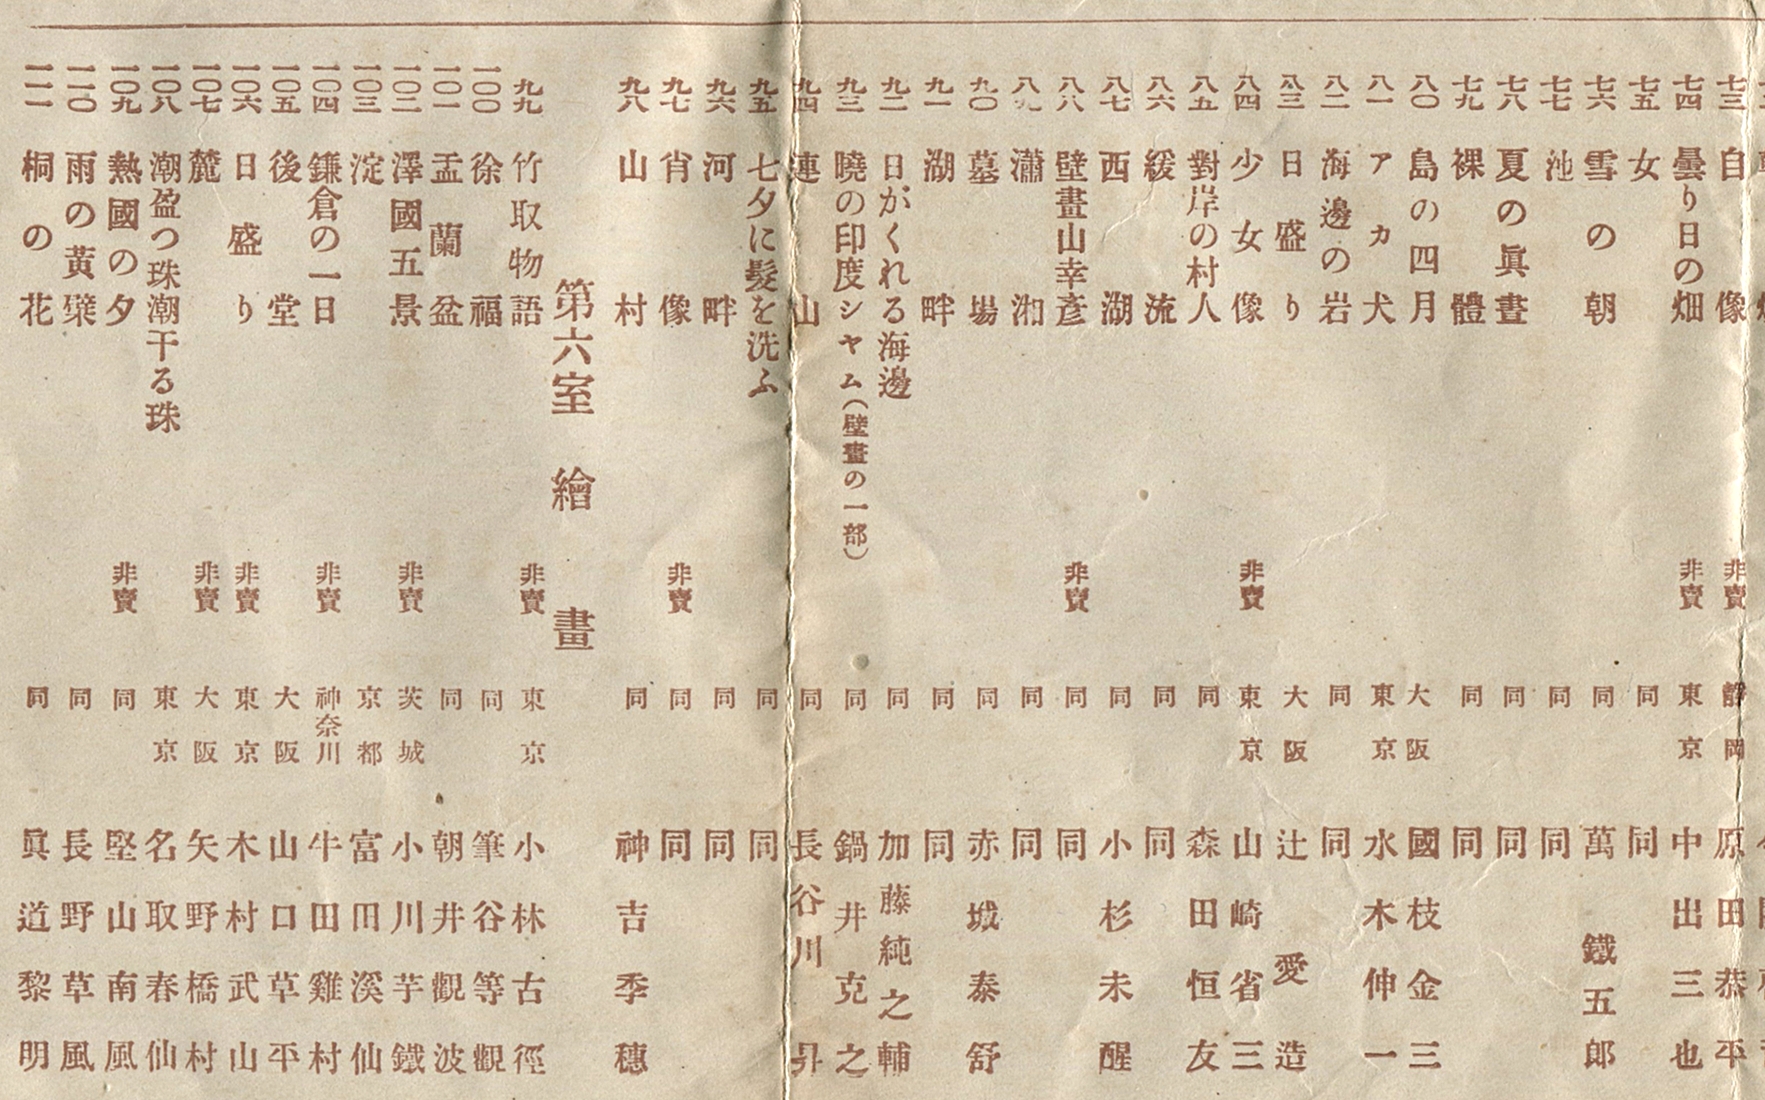 七三 自像 非賣 靜岡 原田恭平
七四 曇り日の畑 非賣 東京 中出三也
七五 女 同 同
七六 雪の朝 同 萬鐵五郎
七七 池 同 同
七八 夏の眞晝 同 同
七九 裸體 同 同
八〇 島の四月 大阪 國枝金三
八一 アカ犬 東京 水木伸一
八二 海邊の岩 同 同
八三 日盛り 大阪 辻愛造
八四 少女像 非賣 東京 山崎省三
八五 對岸の村人 同 森田恒友
八六 緩流 同 同
八七 西湖 同 小杉未醒
八八 壁畫山幸彥 非賣 同 同
八九 瀟湘 同 同
九〇 墓場 同 赤城泰舒
九一 湖畔 同 同
九二 日がくれる海邊 同 加藤純之輔
九三 曉の印度シャム(壁畫の一部) 同 鍋井克之
九四 連山 同 長谷川昇
九五 七夕に髮を洗ふ 同 同
九六 河畔 同 同
九七 肖像 非賣 同 同
九八 山村 同 神吉季穗
第六室 繪畫
九九 竹取物語 非賣 東京 小林古徑
一〇〇 徐福 同 筆谷等觀
一〇一 盂蘭盆 同 朝井觀波
一〇二 澤國五景 非賣 茨城 小川芋錢
一〇三 淀 京都 富田溪仙
一〇四 鎌倉の一日 非賣 神奈川 牛田雞村
一〇五 後堂 大阪 山口草平
一〇六 日盛り 非賣 東京 木村武山
一〇七 麓 非賣 大阪 矢野橋村
一〇八 潮盈つ珠潮干る珠 東京 名取春仙
一〇九 熱國の夕 非賣 同 堅山南風
一一〇 雨の黃檗 同 長野草風
一一一 桐の花 同 眞道黎明